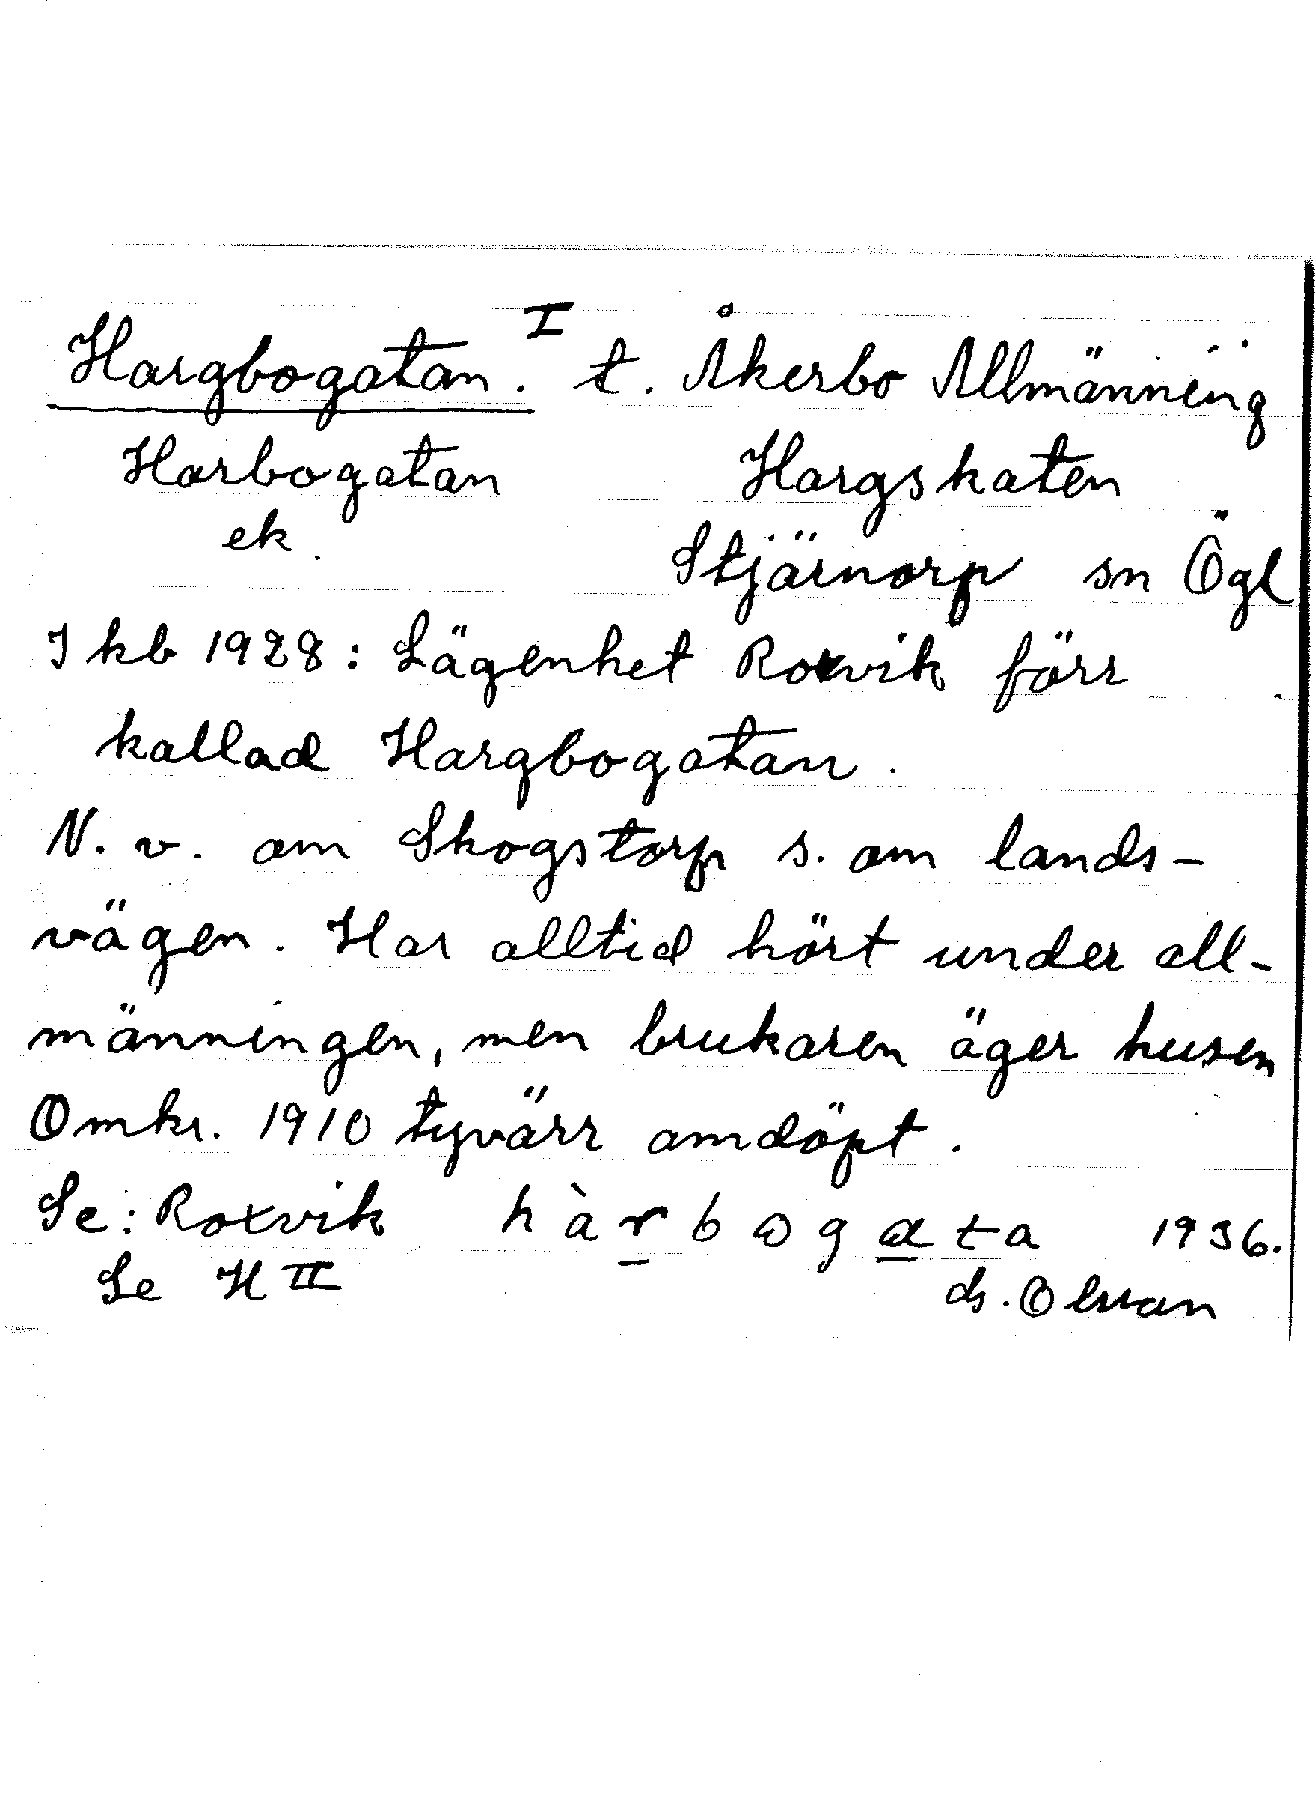 Hargbogatan. I t. Åkerbo Allmänning
Harbogatan Hargskaten
ek. Stjärnorp sn Ögl
I kb 1928: Lägenhet Roxvik förr
kallad Hargbogatan.
N. v. om Skogstorp s. om lands-
vägen. Har alltid hört under all-
männingen, men brukaren äger husen
Omkr. 1910 tyvärr omdöpt.
Se: Roxvik hàrbogata 1936.
Se H II ds. Olsson